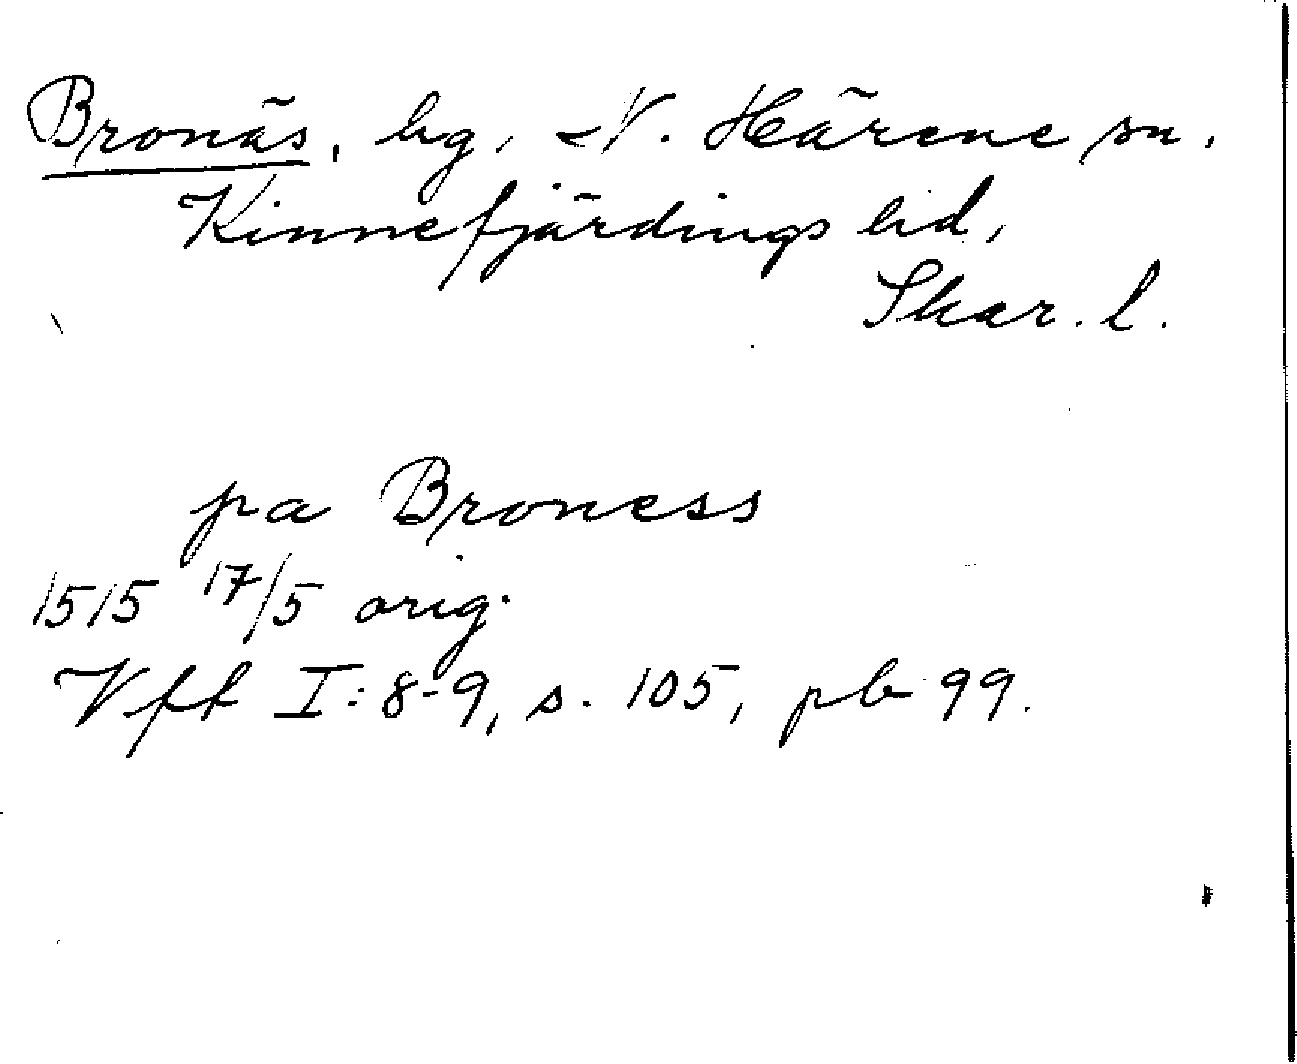 Bronäs, hg, N. Härene sn.
Kinnefjärdings hd,
Skar. l.
pa Broness
1515 17/5 orig.
Vff I: 8-9, s. 105, pb 99.